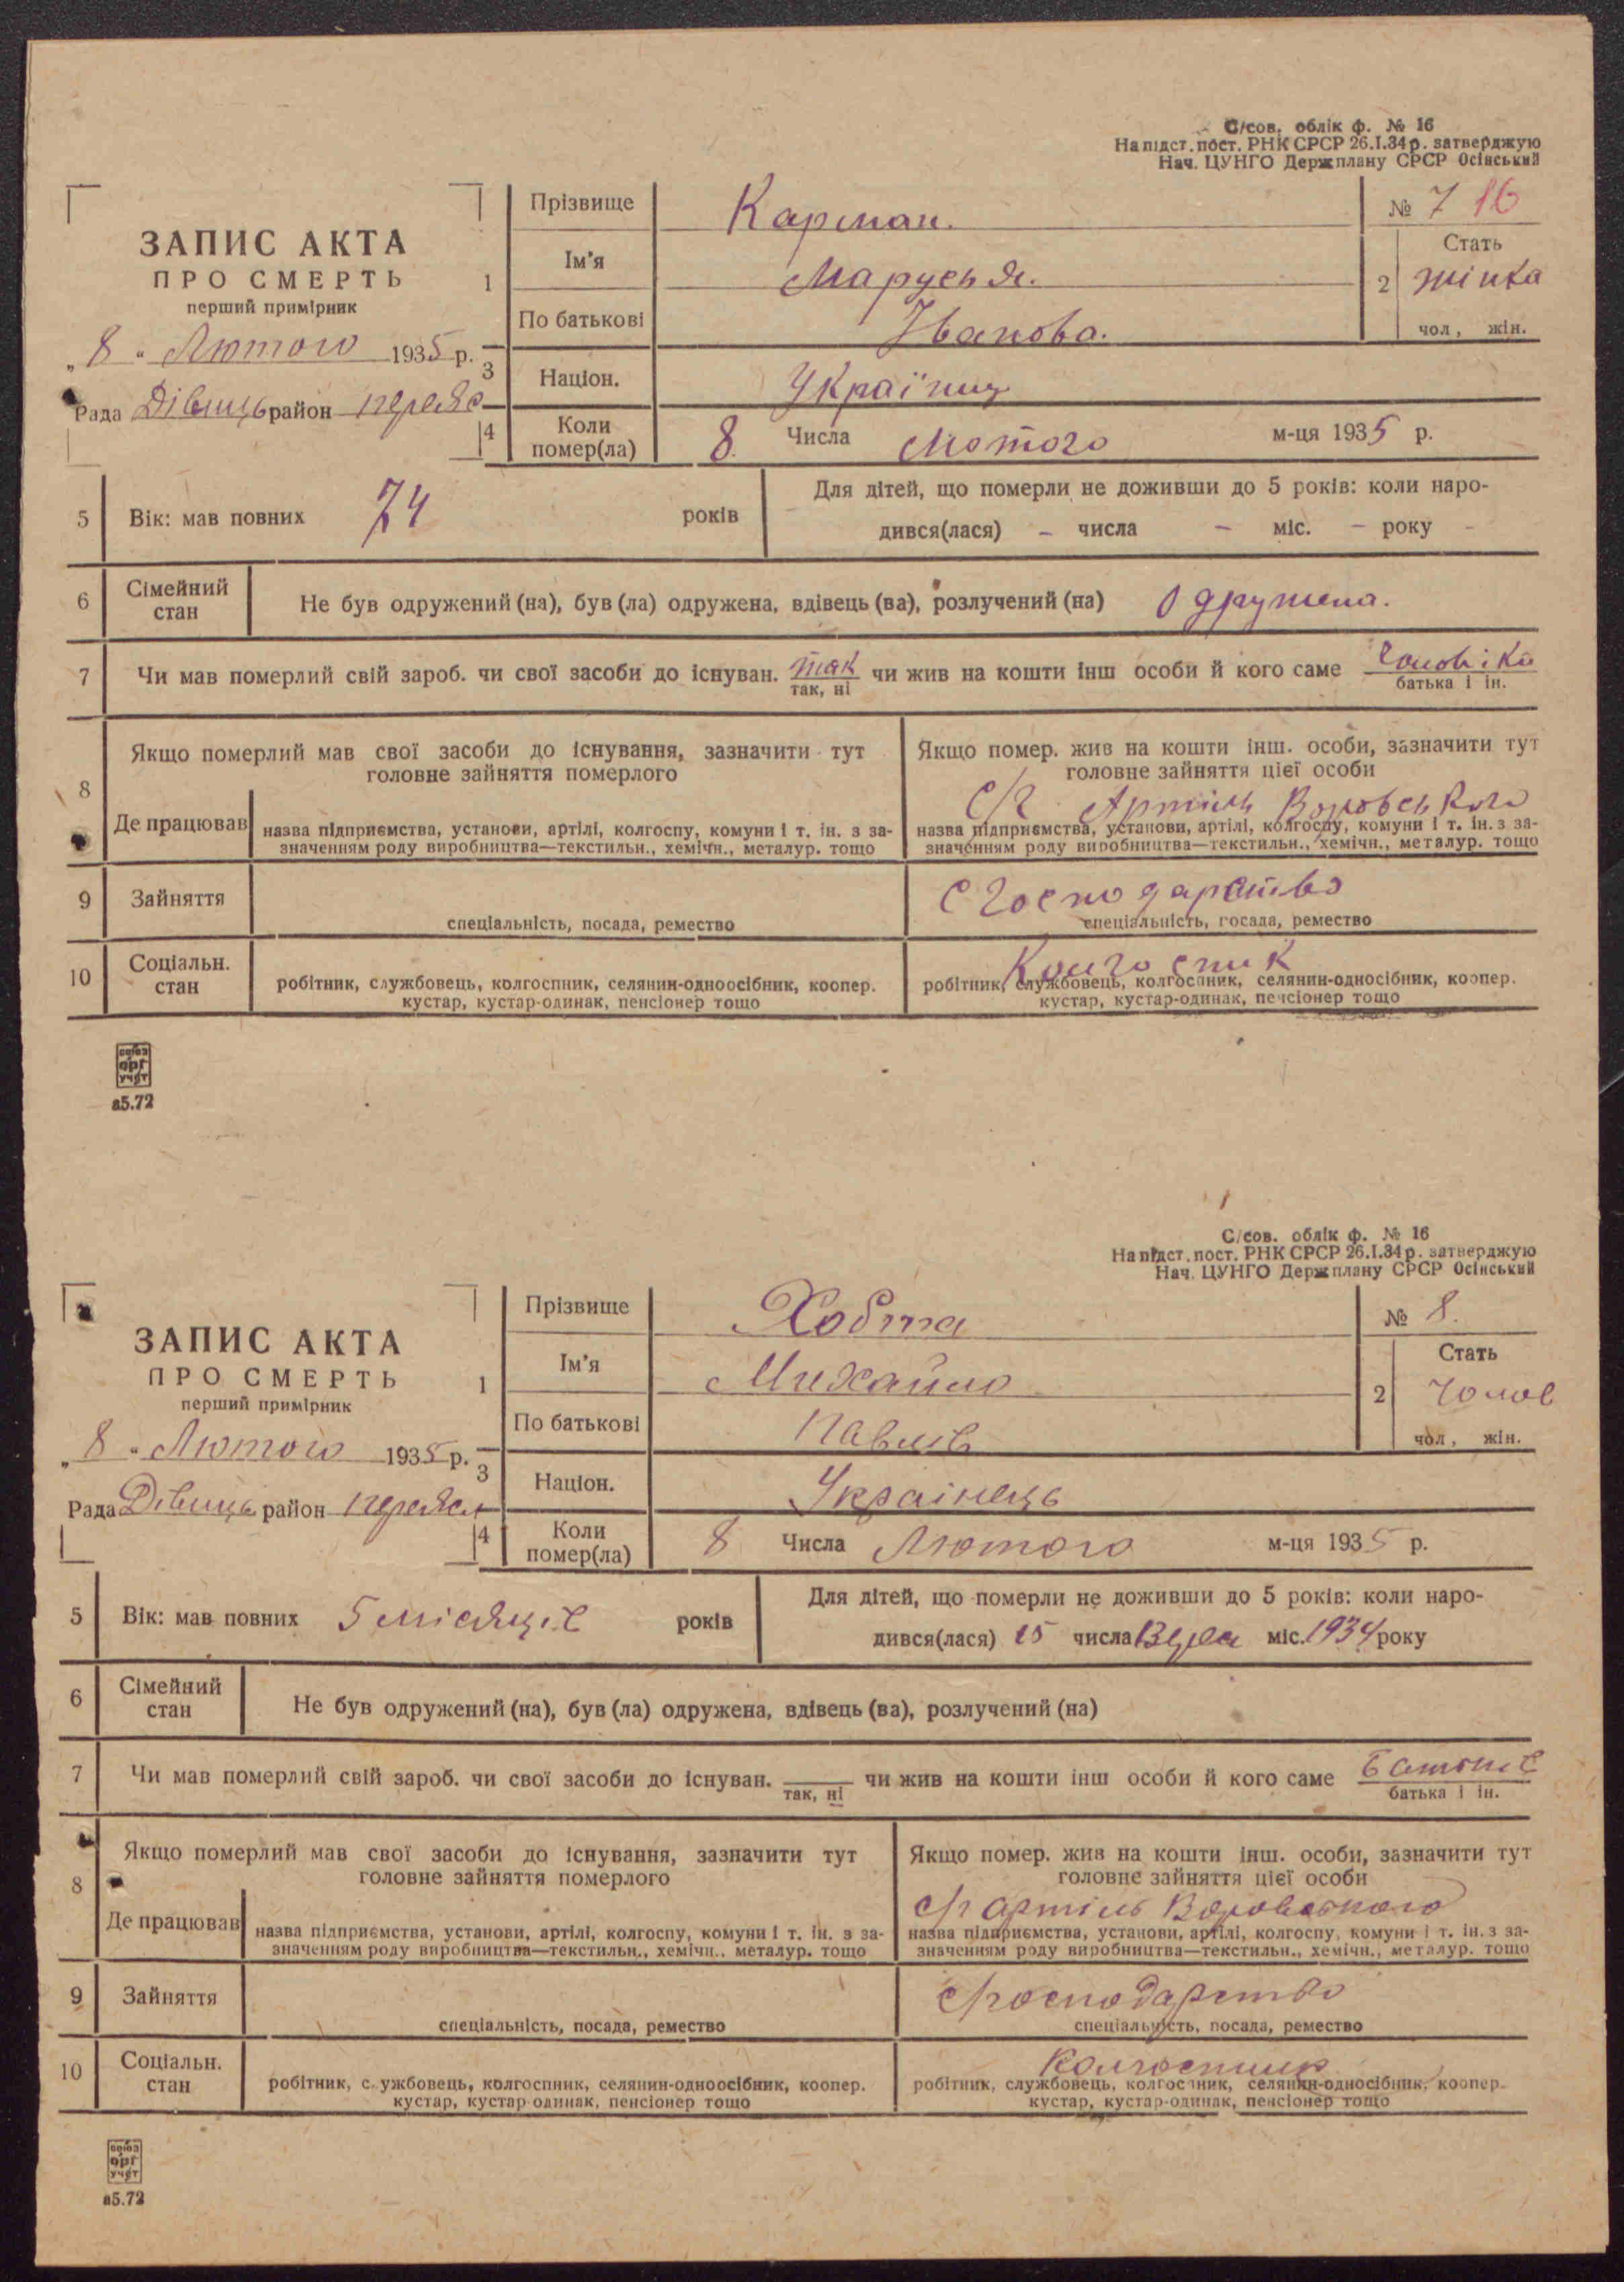 С/сов. облік ф. № 16
На підст. пост. РНК СРСР 26.І.34 р. затверджую
Нач. ЦУНГО Держплану СРСР Осінський
ЗАПИС АКТА
ПРО СМЕРТЬ
перший примірник
„ 8 " Лютого 1935 р.
Рада Дівиць район переяс
1 Прізвище Карман.
Ім'я Марусья.
По батькові Іванова.
№ 7 16
2 Стать жінка
чол, жін.
3 Націон. Українц
4 Коли помер(ла) 8 Числа Лютого м-ця 1935 р.
5 Вік: мав повних 74 років
Для дітей, що померли не доживши до 5 років: коли наро-
дився(лася) – числа – міс. – року –
6 Сімейний стан Не був одружений (на), був (ла) одружена, вдівець (ва), розлучений (на) Одружена.
7 Чи мав померлий свій зароб. чи свої засоби до існуван. так чи жив на кошти інш особи й кого саме Чоловіка
так, ні батька і ін.
8 Якщо померлий мав свої засоби до існування, зазначити тут
головне зайняття померлого
Де працював
назва підприємства, установи, артілі, колгоспу, комуни і т. ін. з за-
значенням роду виробництва—текстильн., хемічн., металур. тощо
Якщо помер. жив на кошти інш. особи, зазначити тут
головне зайняття цієї особи
С/г Артіль Воровського
назва підприємства, установи, артілі, колгоспу, комуни і т. ін. з за-
значенням роду виробництва—текстильн., хемічн., металур. тощо
9 Зайняття
спеціальність, посада, ремество
С господарство
спеціальність, посада, ремество
10 Соціальн. стан
робітник, службовець, колгоспник, селянин-одноосібник, коопер.
кустар, кустар-одинак, пенсіонер тощо
Колгоспник
робітник, службовець, колгоспник, селянин-односібник, коопер.
кустар, кустар-одинак, пенсіонер тощо
союз
орг
учёт
а5.72
С/сов. облік ф. № 16
На підст. пост. РНК СРСР 26.І.34 р. затверджую
Нач. ЦУНГО Держплану СРСР Осінський
ЗАПИС АКТА
ПРО СМЕРТЬ
перший примірник
„ 8 " Лютого 1935 р.
Рада Дівиць район переясл
1 Прізвище Хобта
Ім'я Михайло
По батькові Павлів
№ 8.
2 Стать Чолов
чол, жін.
3 Націон. Українець
4 Коли помер(ла) 8 Числа Лютого м-ця 1935 р.
5 Вік: мав повних 5 місяців років
Для дітей, що померли не доживши до 5 років: коли наро-
дився(лася) 15 числа міс. 1934 року
6 Сімейний стан Не був одружений (на), був (ла) одружена, вдівець (ва), розлучений (на)
7 Чи мав померлий свій зароб. чи свої засоби до існуван. чи жив на кошти інш особи й кого саме Батьків
так, ні батька і ін.
8 Якщо померлий мав свої засоби до існування, зазначити тут
головне зайняття померлого
Де працював
назва підприємства, установи, артілі, колгоспу, комуни і т. ін. з за-
значенням роду виробництва—текстильн., хемічн., металур. тощо
Якщо помер. жив на кошти інш. особи, зазначити тут
головне зайняття цієї особи
с/г артіль Воровського
назва підприємства, установи, артілі, колгоспу, комуни і т. ін. з за-
значенням роду виробництва—текстильн., хемічн., металур. тощо
9 Зайняття
спеціальність, посада, ремество
с/господарство
спеціальність, посада, ремество
10 Соціальн. стан
робітник, службовець, колгоспник, селянин-одноосібник, коопер.
кустар, кустар-одинак, пенсіонер тощо
Колгоспник
робітник, службовець, колгоспник, селянин-односібник, коопер.
кустар, кустар-одинак, пенсіонер тощо
союз
орг
учёт
а5.72